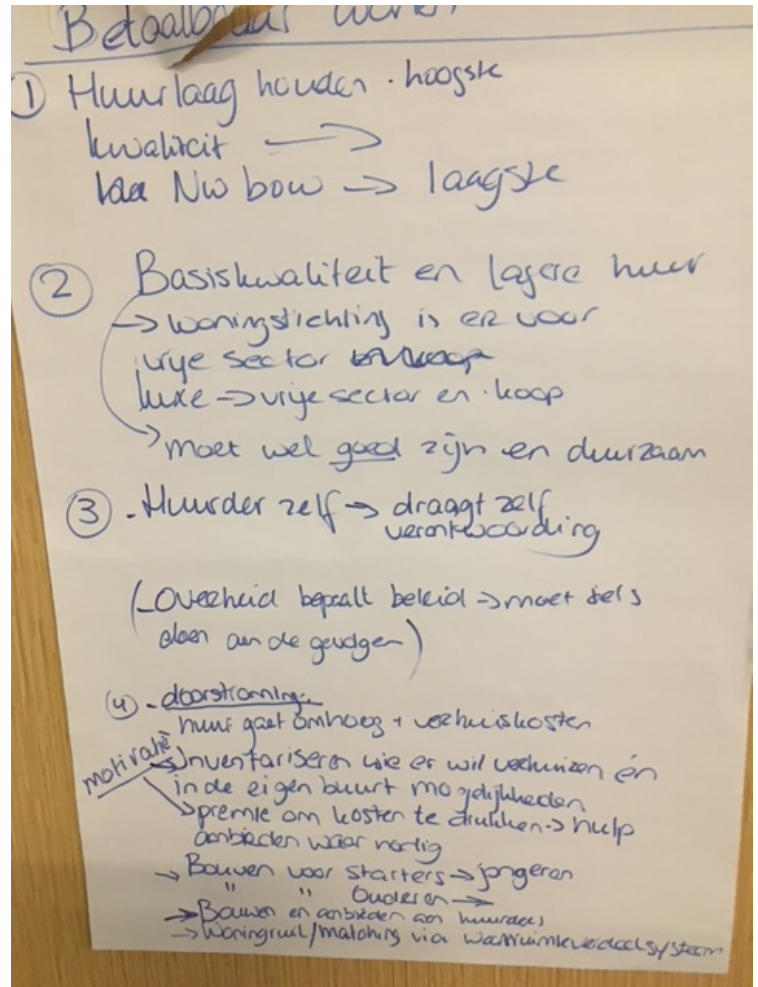 Betaalbaar
① Huur laag houden . hoogste
kwaliteit →
Nw bouw → laagste
② Basiskwaliteit en lagere huur
→ woningstichting is er voor
vrije sector en koop
luxe → vrije sector en koop
→ moet wel goed zijn en duurzaam
③ - Huurder zelf → draagt zelf
verantwoording
(- Overheid bepaalt beleid → moet iets
doen aan de gevolgen)
④ - doorstroming
huur gaat omhoog + verhuiskosten
motivatie
→ Inventariseren wie er wil verhuizen én
in de eigen buurt mogelijkheden
→ premie om kosten te drukken → hulp
aanbieden waar nodig
→ Bouwen voor starters → jongeren
" " Ouderen →
→ Bouwen en aanbieden aan huurders
→ Woningruil/matching via woonruimteverdeelsysteem